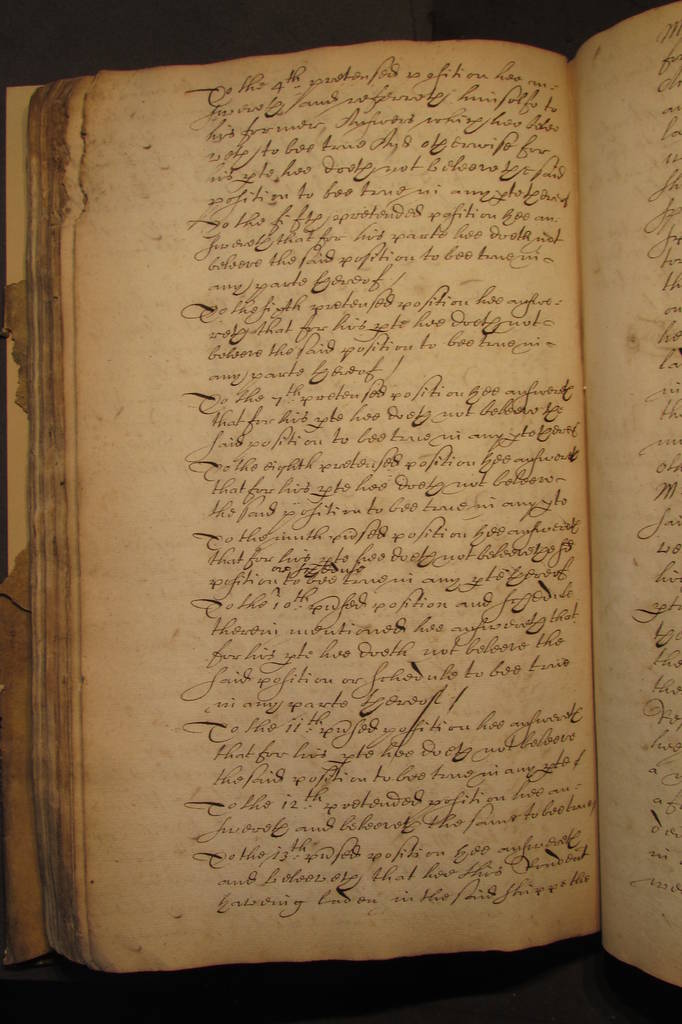 To the 4th pretensed position hee an-
swereth and referreth himselfe to
his former Answers which hee belee
veth to bee true And otherwise for
his pte hee doeth not beleeve the said
position to bee true in any pte thereof
To the fifth pretended position hee an-
swereth that for his parte hee doeth not
beleeve the said position to bee true in
any parte thereof /
To the sixth pretensed position hee answe-
reth that for his pte hee doeth not
beleeve the said position to bee true in
any parte thereof /
To the 7th pretensed position hee answereth
that for his pte hee doeth not beleeve the
said position to bee true in any pte thereof
To the eighth pretensed position hee answereth
that for his pte hee doeth not beleeve
the said position to bee true in any pte
To the ninth prtsed position hee answereth
that for his pte hee doeth not beleeve the sd
or schedule
position to bee true in any pte thereof
To the 10th prtsed position and schedule
therein mentioned hee answereth that
for his pte hee doeth not beleeve the
said position or schedule to bee true
in any parte thereof /
To the 11th prtsed position hee answereth
that for his pte hee doeth not beleeve
the said position to bee true in any pte /
To the 12th pretended position hee an-
swereth and beleeveth the same to bee true
To the 13th prtsed position hee answereth
and beleeveth that hee this Rendent
haveing laden in the said shipp the